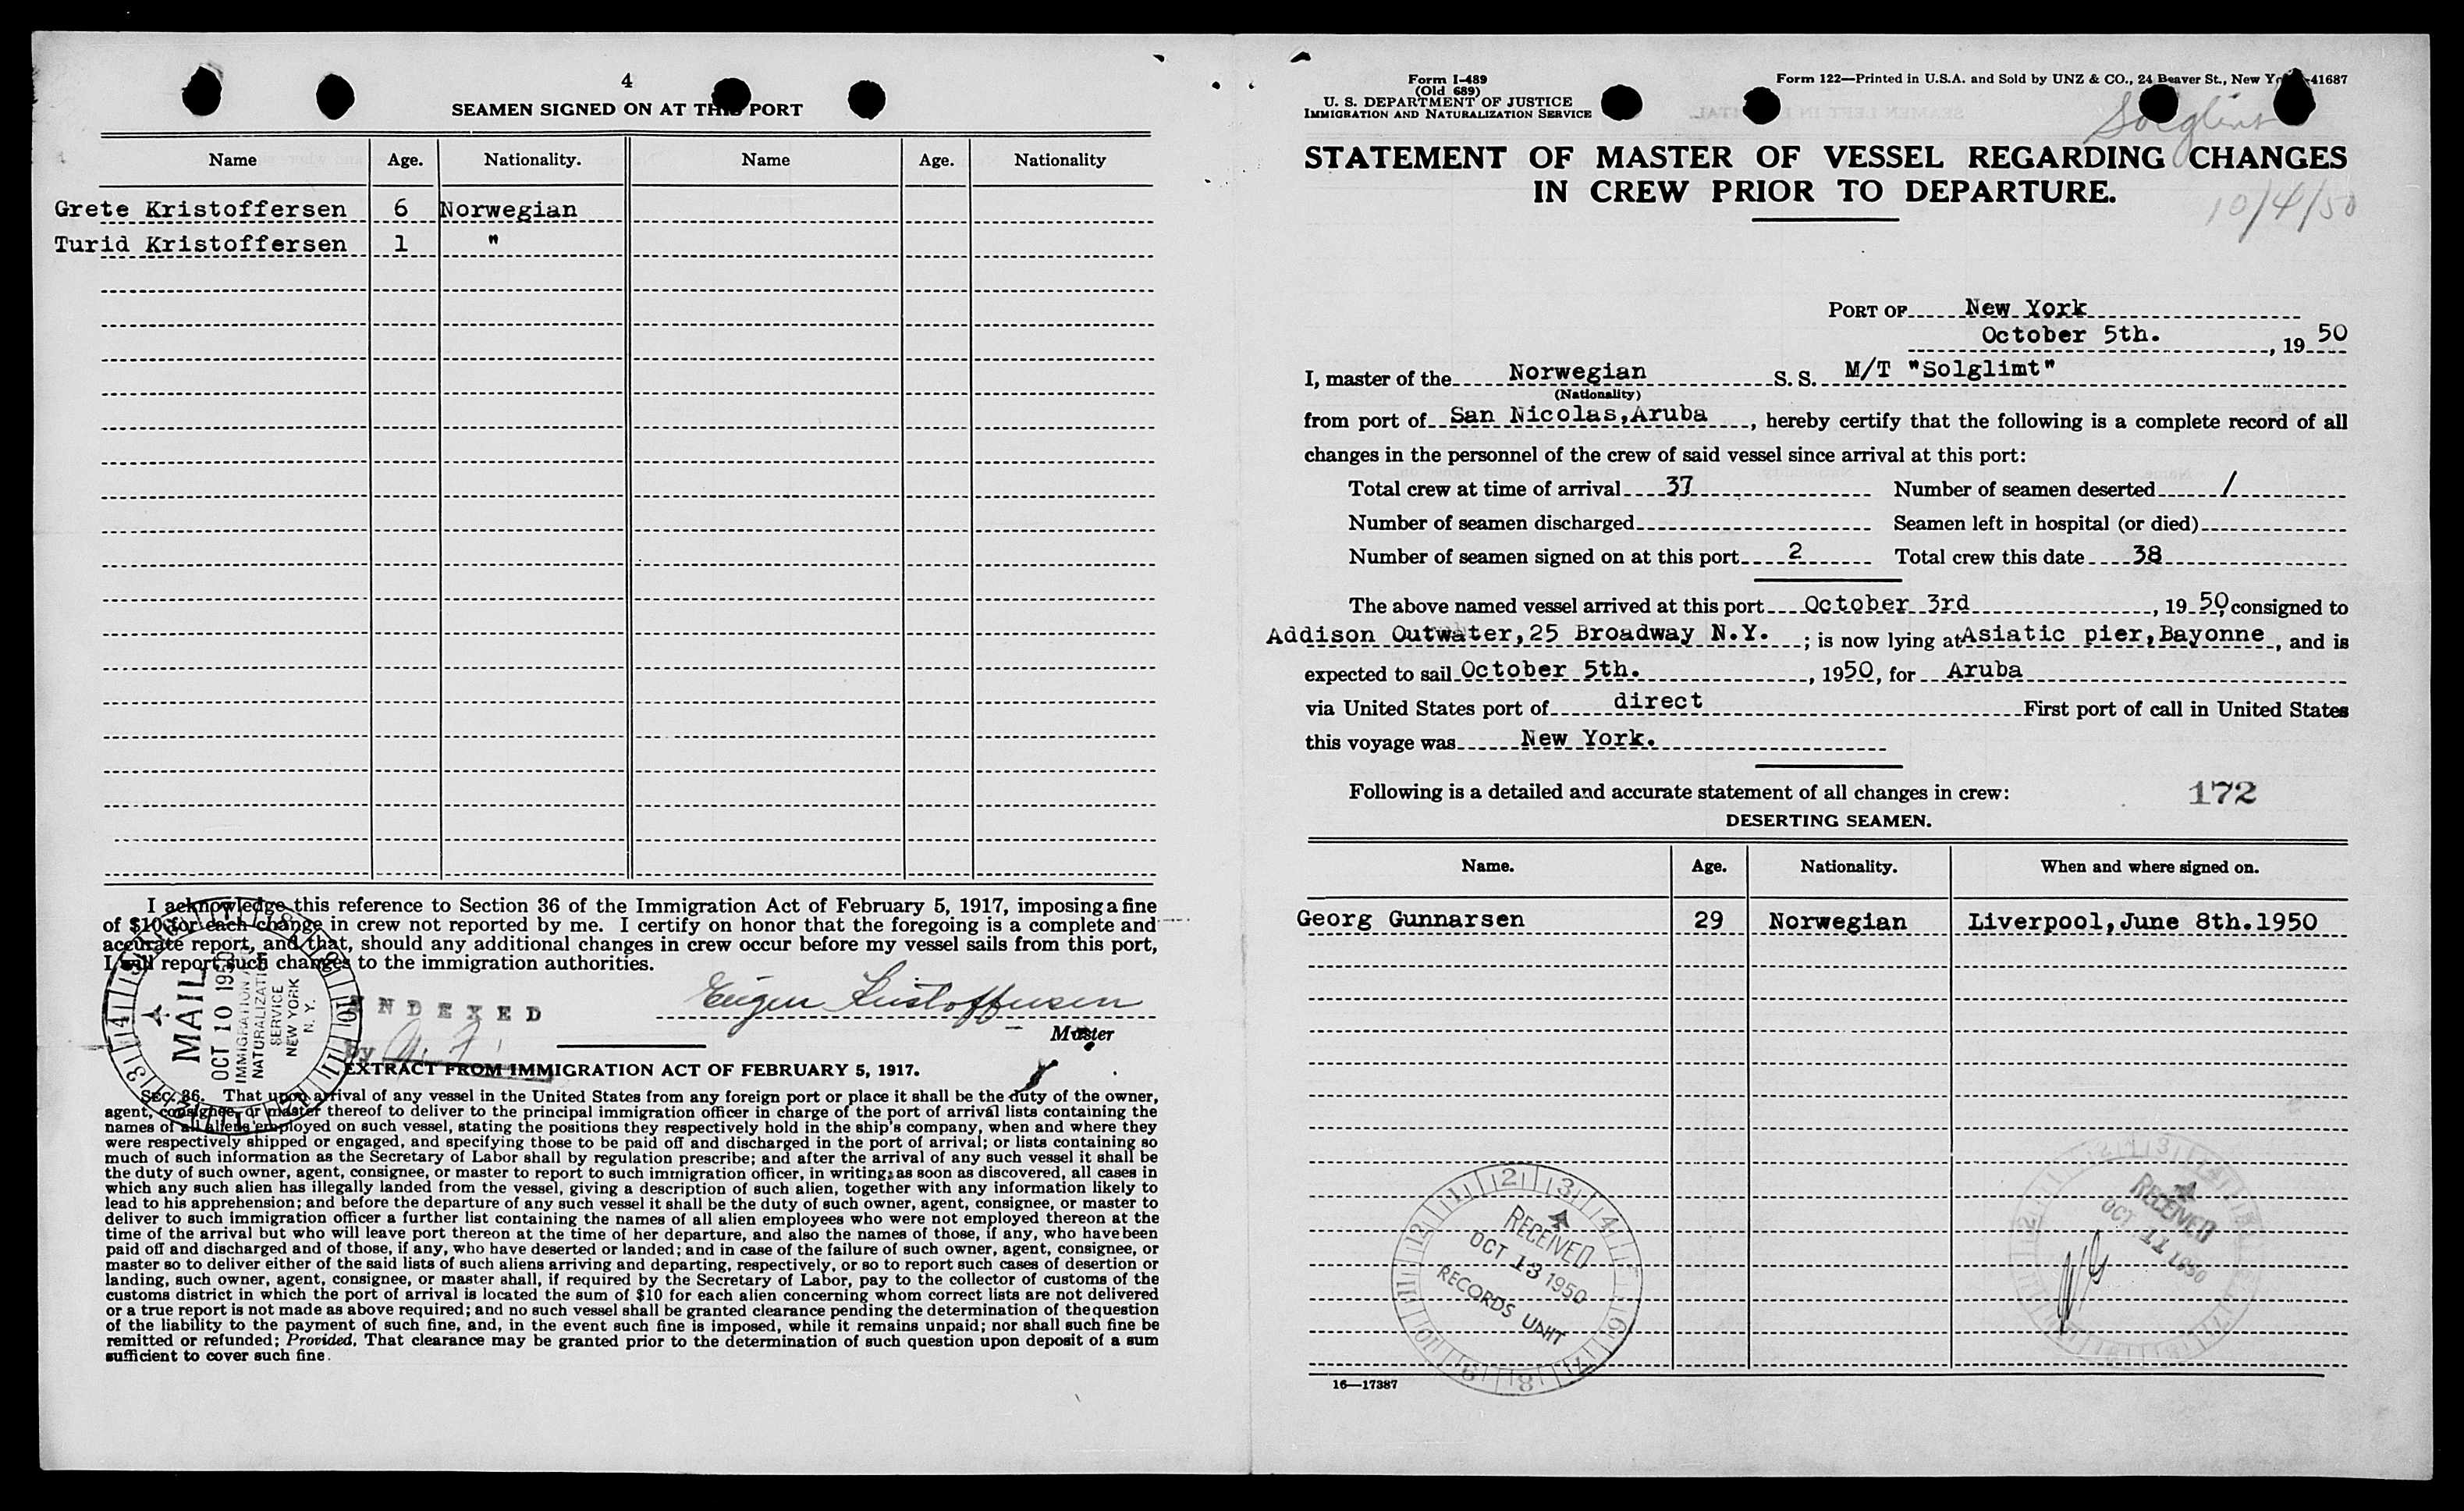 4
SEAMEN SIGNED ON AT THIS PORT
Name Age. Nationality. Name Age. Nationality
Grete Kristoffersen 6 Norwegian
Turid Kristoffersen 1 "
I acknowledge this reference to Section 36 of the Immigration Act of February 5, 1917, imposing a fine
of $10 for each change in crew not reported by me. I certify on honor that the foregoing is a complete and
accurate report, and that, should any additional changes in crew occur before my vessel sails from this port,
I will report such changes to the immigration authorities.
MAIL
OCT 10 1950
IMMIGRATION AND
NATURALIZATION
SERVICE
NEW YORK
N. Y.
INDEXED
by
Eugen Kristoffersen
Master
EXTRACT FROM IMMIGRATION ACT OF FEBRUARY 5, 1917.
SEC. 36. That upon arrival of any vessel in the United States from any foreign port or place it shall be the duty of the owner,
agent, consignee, or master thereof to deliver to the principal immigration officer in charge of the port of arrival lists containing the
names of all aliens employed on such vessel, stating the positions they respectively hold in the ship's company, when and where they
were respectively shipped or engaged, and specifying those to be paid off and discharged in the port of arrival; or lists containing so
much of such information as the Secretary of Labor shall by regulation prescribe; and after the arrival of any such vessel it shall be
the duty of such owner, agent, consignee, or master to report to such immigration officer, in writing, as soon as discovered, all cases in
which any such alien has illegally landed from the vessel, giving a description of such alien, together with any information likely to
lead to his apprehension; and before the departure of any such vessel it shall be the duty of such owner, agent, consignee, or master to
deliver to such immigration officer a further list containing the names of all alien employees who were not employed thereon at the
time of the arrival but who will leave port thereon at the time of her departure, and also the names of those, if any, who have been
paid off and discharged and of those, if any, who have deserted or landed; and in case of the failure of such owner, agent, consignee, or
master so to deliver either of the said lists of such aliens arriving and departing, respectively, or so to report such cases of desertion or
landing, such owner, agent, consignee, or master shall, if required by the Secretary of Labor, pay to the collector of customs of the
customs district in which the port of arrival is located the sum of $10 for each alien concerning whom correct lists are not delivered
or a true report is not made as above required; and no such vessel shall be granted clearance pending the determination of the question
of the liability to the payment of such fine, and, in the event such fine is imposed, while it remains unpaid; nor shall such fine be
remitted or refunded; Provided, That clearance may be granted prior to the determination of such question upon deposit of a sum
sufficient to cover such fine.
Form I-489
(Old 689)
U. S. DEPARTMENT OF JUSTICE
IMMIGRATION AND NATURALIZATION SERVICE
Form 122—Printed in U.S.A. and Sold by UNZ & CO., 24 Beaver St., New York-41687
Solglimt
STATEMENT OF MASTER OF VESSEL REGARDING CHANGES
IN CREW PRIOR TO DEPARTURE.
10/4/50
PORT OF New York
October 5th., 19 50
I, master of the Norwegian S. S. M/T "Solglimt"
(Nationality)
from port of San Nicolas,Aruba, hereby certify that the following is a complete record of all
changes in the personnel of the crew of said vessel since arrival at this port:
Total crew at time of arrival 37 Number of seamen deserted 1
Number of seamen discharged Seamen left in hospital (or died)
Number of seamen signed on at this port 2 Total crew this date 38
The above named vessel arrived at this port October 3rd, 19 50, consigned to
Addison Outwater,25 Broadway N.Y.; is now lying at Asiatic pier,Bayonne, and is
expected to sail October 5th., 1950, for Aruba
via United States port of direct First port of call in United States
this voyage was New York.
Following is a detailed and accurate statement of all changes in crew:
172
DESERTING SEAMEN.
Name. Age. Nationality. When and where signed on.
Georg Gunnarsen 29 Norwegian Liverpool,June 8th.1950
RECEIVED
OCT 13 1950
RECORDS UNIT
RECEIVED
OCT 11 1950
16—17387